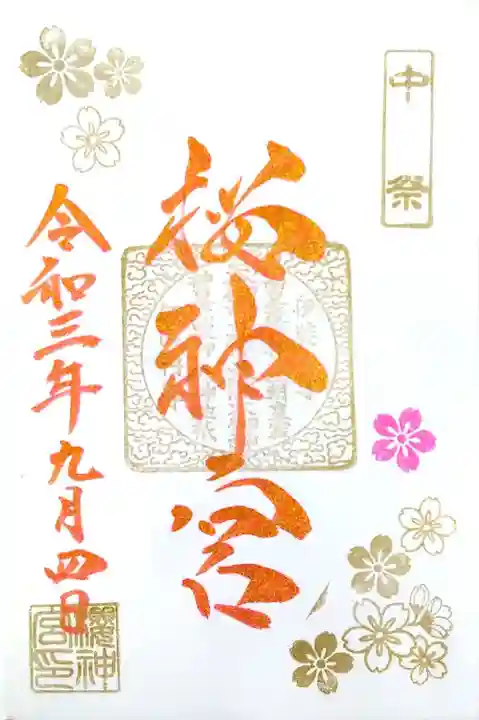 中祭
桜神宮
令和三年九月四日
櫻神宮印